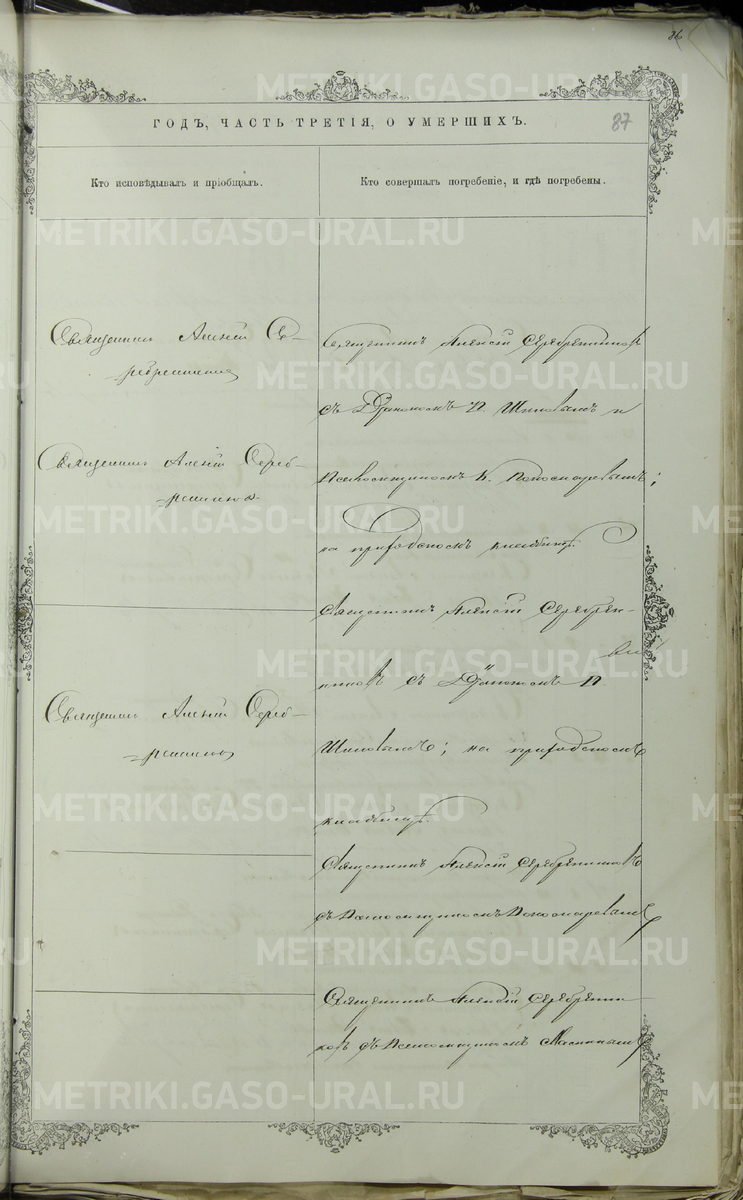 86
ГОДЪ, ЧАСТЬ ТРЕТІЯ, О УМЕРШИХЪ.
87
Кто исповѣдывалъ и пріобщалъ.
Кто совершалъ погребеніе, и гдѣ погребены.
Священникъ Алексій Се-
ребренниковъ
Священникъ Алексій Сереб-
ренниковъ
Священникъ Алексій Сереб-
ренниковъ
Священникъ Алексій Серебренниковъ
съ Діакономъ П. и
Псаломщикомъ Пономаревымъ;
на приходскомъ кладбищѣ.
Священникъ Алексій Серебрен-
никовъ съ Діакономъ П.
на приходскомъ
кладбищѣ.
Священникъ Алексій Серебренниковъ
съ Псаломщикомъ Пономаревымъ
Священникъ Алексій Серебренни-
ковъ съ Псаломщикомъ
METRIKI.GASO-URAL.RU